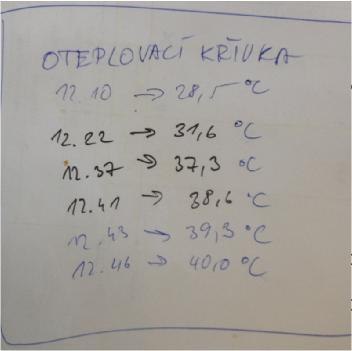 OTEPLOVACÍ KŘIVKA
12.10 → 28,5 °C
12.22 → 31,6 °C
12.37 → 37,3 °C
12.41 → 38,6 °C
12.43 → 39,3 °C
12.46 → 40,0 °C